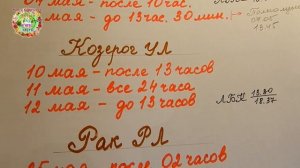 мая - после 10 час.
мая - до 13 час. 30 мин.
07.05
13.45
Козерог УЛ
10 мая - после 13 часов
11 мая - все 24 часа
12 мая - до 13 часов
ЛБК 13.30
18.37
Рак РЛ
мая - после 02 часов